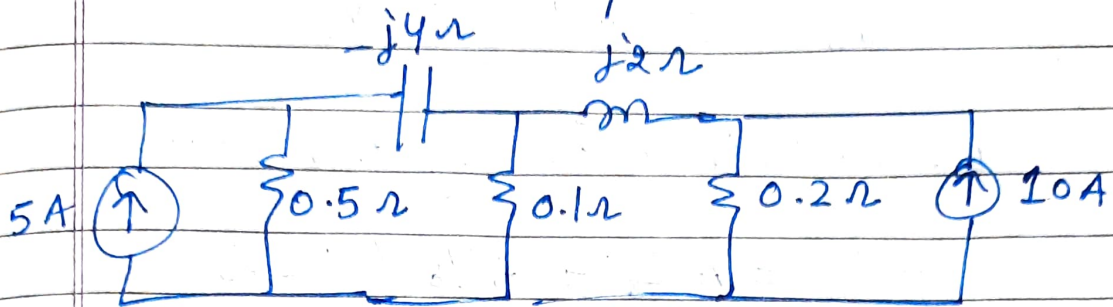 -j4Ω
j2Ω
5A 0.5Ω 0.1Ω 0.2Ω 10A